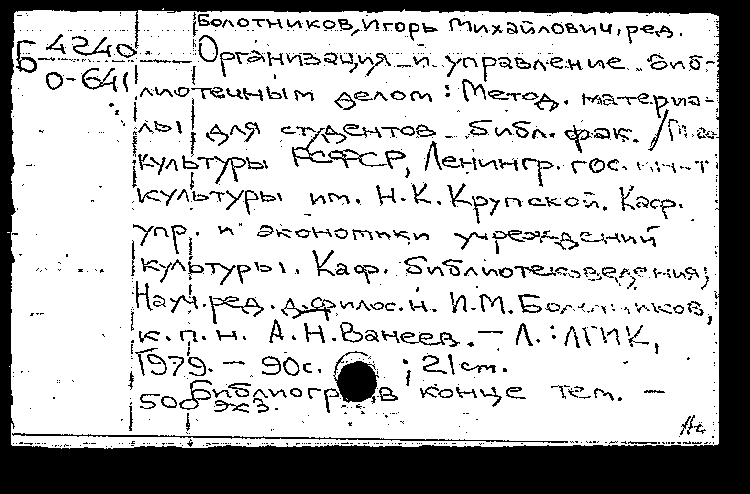 Болотников, Игорь Михайлович, ред.
Б 4240
0-641
Организация и управление биб-
лиотечным делом : Метод. материа-
лы для студентов библ. фак. /
культуры РСФСР, Ленингр. гос. ин-т
культуры им. Н.К.Крупской. Каф.
упр. и экономики учреждений
культуры. Каф. библиотековедения;
Науч. ред. д.филос.н. И.М.Болотников,
к.п.н. А.Н.Ванеев. — Л. : ЛГИК,
1979. — 90с. ; 21см.
Библиогр. в конце тем. —
500 экз.